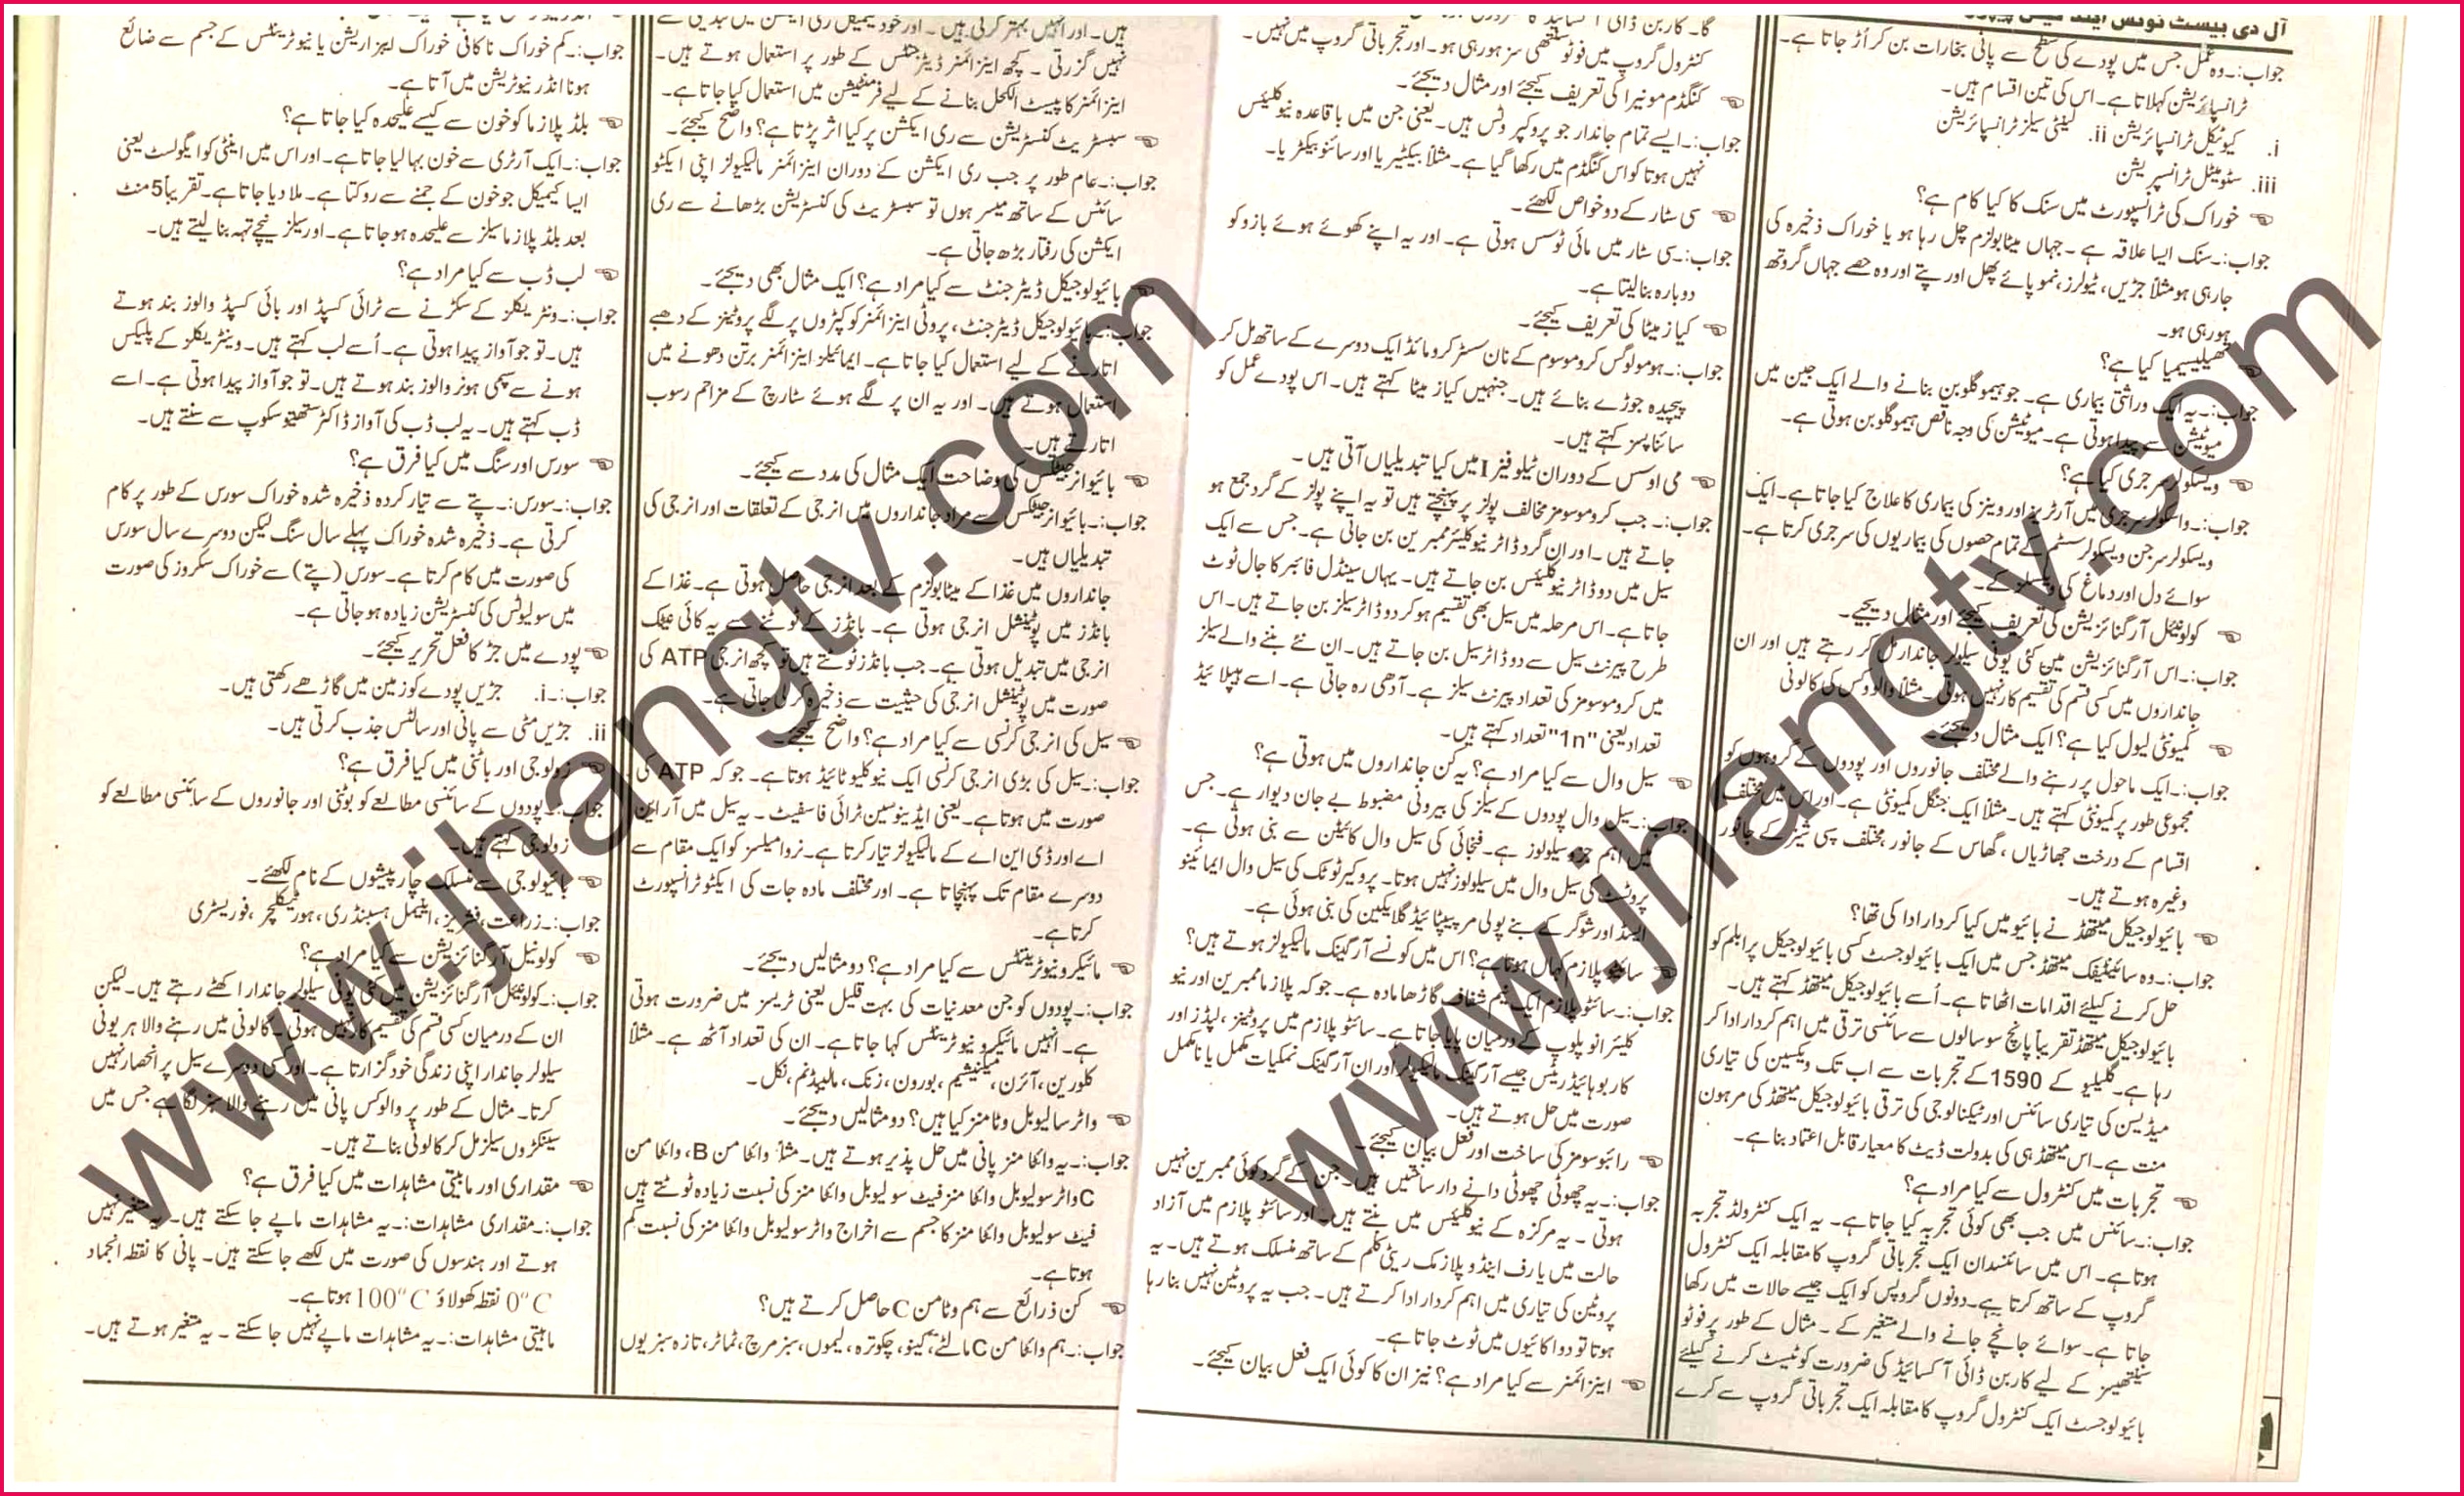 آل دی بیسٹ نوٹس اینڈ
جواب:۔ وہ عمل جس میں پودے کی سطح سے پانی بخارات بن کر اُڑ جاتا ہے۔
ٹرانسپائریشن کہلاتا ہے۔ اس کی تین اقسام ہیں۔
i. کیوٹیکل ٹرانسپائریشن ii. لینٹی سیلز ٹرانسپائریشن
iii. سٹومیٹل ٹرانسپریشن
خوراک کی ٹرانسپورٹ میں سنک کا کیا کام ہے؟
جواب:۔ سنک ایسا علاقہ ہے۔ جہاں میٹابولزم چل رہا ہو یا خوراک ذخیرہ کی
جا رہی ہو مثلاً جڑیں، ٹیوبرز، نمو پائے پھل اور پتے اور وہ حصے جہاں گروتھ
ہو رہی ہو۔
تھیلیسیمیا کیا ہے؟
جواب:۔ یہ ایک وراثتی بیماری ہے۔ جو ہیموگلوبن بنانے والے ایک جین میں
میوٹیشن سے پیدا ہوتی ہے۔ میوٹیشن کی وجہ ناقص ہیموگلوبن ہوتی ہے۔
ویسکولر سرجری کیا ہے؟
جواب:۔ واسکولر سرجری میں آرٹریز اور وینز کی بیماری کا علاج کیا جاتا ہے۔ ایک
ویسکولر سرجن ویسکولر سسٹم کے تمام حصوں کی بیماریوں کی سرجری کرتا ہے۔
سوائے دل اور دماغ کی ویسلز کے۔
کولونیئل آرگنائزیشن کی تعریف کیجئے اور مثال دیجیے۔
جواب:۔ اس آرگنائزیشن میں کئی یونی سیلولر جاندار مل کر رہتے ہیں اور ان
جانداروں میں کسی قسم کی تقسیم کار نہیں ہوتی۔ مثلاً والووکس کی کالونی
کمیونٹی لیول کیا ہے؟ ایک مثال دیجئے۔
جواب:۔ ایک ماحول پر رہنے والے مختلف جانوروں اور پودوں کے گروہوں کو
مجموعی طور پر کمیونٹی کہتے ہیں۔ مثلاً ایک جنگل کمیونٹی ہے۔ اور اس میں مختلف
اقسام کے درخت جھاڑیاں، گھاس کے جانور، مختلف پسی شیز کے جانور
وغیرہ ہوتے ہیں۔
بائیولوجیکل میتھڈ نے بائیو میں کیا کردار ادا کی تھا؟
جواب:۔ وہ سائینٹیفک میتھڈ جس میں ایک بائیولوجسٹ کسی بائیولوجیکل پرابلم کو
حل کرنے کیلئے اقدامات اٹھاتا ہے۔ اُسے بائیولوجیکل میتھڈ کہتے ہیں۔
بائیولوجیکل میتھڈ تقریباً پانچ سو سالوں سے سائنسی ترقی میں اہم کردار ادا کر
رہا ہے۔ گلیلیو کے 1590 کے تجربات سے اب تک ویکسین کی تیاری
میڈیسن کی تیاری سائنس اور ٹیکنالوجی کی ترقی بائیولوجیکل میتھڈ کی مرہون
منت ہے۔ اس میتھڈ ہی کی بدولت ڈیٹ کا معیار قابل اعتماد بنا ہے۔
تجربات میں کنٹرول سے کیا مراد ہے؟
جواب:۔ سائنس میں جب بھی کوئی تجربہ کیا جاتا ہے۔ یہ ایک کنٹرولڈ تجربہ
ہوتا ہے۔ اس میں سائنسدان ایک تجرباتی گروپ کا مقابلہ ایک کنٹرول
گروپ کے ساتھ کرتا ہے۔ دونوں گروپس کو ایک جیسے حالات میں رکھا
جاتا ہے۔ سوائے جانچے جانے والے متغیر کے۔ مثال کے طور پر فوٹو
سینتھیسز کے لیے کاربن ڈائی آکسائیڈ کی ضرورت کو ٹیسٹ کرنے کیلئے
بائیولوجسٹ ایک کنٹرول گروپ کا مقابلہ ایک تجرباتی گروپ سے کرے
گا۔ کاربن ڈائی آکسائیڈ
کنٹرول گروپ میں فوٹوسنتھی سز ہو رہی ہو۔ اور تجرباتی گروپ میں نہیں۔
کنگڈم مونیرا کی تعریف کیجئے اور مثال دیجئے۔
جواب:۔ ایسے تمام جاندار جو پروکیریوٹس ہیں۔ یعنی جن میں باقاعدہ نیوکلیئس
نہیں ہوتا کو اس کنگڈم میں رکھا گیا ہے۔ مثلاً بیکٹیریا اور سائنو بیکٹریا۔
سی سٹار کے دو خواص لکھئے۔
جواب:۔ سی سٹار میں مائی ٹوسس ہوتی ہے۔ اور یہ اپنے کھوئے ہوئے بازو کو
دوبارہ بنا لیتا ہے۔
کیازمیٹا کی تعریف کیجئے۔
جواب:۔ ہومولوگس کروموسوم کے نان سسٹر کرومائڈ ایک دوسرے کے ساتھ مل کر
پیچیدہ جوڑے بنائے ہیں۔ جنہیں کیازمیٹا کہتے ہیں۔ اس پورے عمل کو
سائناپسز کہتے ہیں۔
می اوسس کے دوران ٹیلوفیز I میں کیا تبدیلیاں آتی ہیں۔
جواب:۔ جب کروموسومز مخالف پولز پر پہنچتے ہیں تو یہ اپنے پولز کے گرد جمع ہو
جاتے ہیں۔ اور ان گرد ڈاٹر نیوکلیئر ممبرین بن جاتی ہے۔ جس سے ایک
سیل میں دو ڈاٹر نیوکلیئس بن جاتے ہیں۔ یہاں سپنڈل فائبر کا جال ٹوٹ
جاتا ہے۔ اس مرحلہ میں سیل بھی تقسیم ہو کر دو ڈاٹر سیلز بن جاتے ہیں۔ اس
طرح پیرنٹ سیل سے دو ڈاٹر سیل بن جاتے ہیں۔ ان نئے بننے والے سیلز
میں کروموسومز کی تعداد پیرنٹ سیلز ہے۔ آدھی رہ جاتی ہے۔ اسے ہیپلائیڈ
تعداد یعنی "1n" تعداد کہتے ہیں۔
سیل وال سے کیا مراد ہے؟ یہ کن جانداروں میں ہوتی ہے؟
جواب:۔ سیل وال پودوں کے سیلز کی بیرونی مضبوط بے جان دیوار ہے۔ جس
میں اہم جزو سیلولوز ہے۔ فنجائی کی سیل وال کائیٹن سے بنی ہوتی ہے۔
پروٹسٹ کی سیل وال میں سیلولوز نہیں ہوتا۔ پروکیرٹوٹک کی سیل وال ایمائینو
ایسڈ اور شوگر کے بنے پولی مر پیپٹائیڈ گلائیکین کی بنی ہوئی ہے۔
سائٹوپلازم کہاں ہوتا ہے؟ اس میں کونسے آرگینک مالیکیولز ہوتے ہیں؟
جواب:۔ سائٹوپلازم ایک نیم شفاف گاڑھا مادہ ہے۔ جو کہ پلازما ممبرین اور نیو
کلیئر انویلوپ کے درمیان پایا جاتا ہے۔ سائٹوپلازم میں پروٹینز، لپڈز اور
کاربوہائیڈریٹس جیسے آرگینک مالیکیولز اور ان آرگینک نمکیات مکمل یا نامکمل
صورت میں حل ہوتے ہیں۔
رائبوسومز کی ساخت اور فعل بیان کیجئے۔
جواب:۔ یہ چھوٹی چھوٹی دانے دار ساختیں ہیں۔ جن کے گرد کوئی ممبرین نہیں
ہوتی۔ یہ مرکزہ کے نیوکلیئس میں بنتے ہیں۔ اور سائٹوپلازم میں آزاد
حالت میں یا رف اینڈوپلازمک ریٹی کلم کے ساتھ منسلک ہوتے ہیں۔ یہ
پروٹین کی تیاری میں اہم کردار ادا کرتے ہیں۔ جب یہ پروٹین نہیں بنا رہا
ہوتا تو دو اکائیوں میں ٹوٹ جاتا ہے۔
اینزائمز سے کیا مراد ہے؟ نیز ان کا کوئی ایک فعل بیان کیجئے۔
ہیں۔ اور انہیں بہتر کرتی ہیں۔ اور خود کیمیکل ری ایکشن میں تبدیلی سے
نہیں گزرتی۔ کچھ اینزائمز ڈیٹرجنٹس کے طور پر استعمال ہوتے ہیں۔
اینزائمز کا پیسٹ الکحل بنانے کے لیے فرمنٹیشن میں استعمال کیا جاتا ہے۔
سبسٹریٹ کنسٹریشن سے ری ایکشن پر کیا اثر پڑتا ہے؟ واضح کیجئے۔
جواب:۔ عام طور پر جب ری ایکشن کے دوران اینزائمز مالیکیولز اپنی ایکٹو
سائٹس کے ساتھ میسر ہوں تو سبسٹریٹ کی کنسٹریشن بڑھانے سے ری
ایکشن کی رفتار بڑھ جاتی ہے۔
بائیولوجیکل ڈیٹرجنٹ سے کیا مراد ہے؟ ایک مثال بھی دیجئے۔
جواب:۔ بائیولوجیکل ڈیٹرجنٹ، پروٹی اینزائمز کو کپڑوں پر لگے پروٹینز کے دھبے
اتارنے کے لیے استعمال کیا جاتا ہے۔ ایمائیلیز اینزائمز برتن دھونے میں
استعمال ہوتے ہیں۔ اور یہ ان پر لگے ہوئے سٹارچ کے مزاحم رسوب
اتارتے ہیں۔
بائیوانرجیٹکس کی وضاحت ایک مثال کی مدد سے کیجئے۔
جواب:۔ بائیوانرجیٹکس سے مراد جانداروں میں انرجی کے تعلقات اور انرجی کی
تبدیلیاں ہیں۔
جانداروں میں غذا کے میٹابولزم کے بعد انرجی حاصل ہوتی ہے۔ غذا کے
بانڈز میں پوٹینشل انرجی ہوتی ہے۔ بانڈز کے ٹوٹنے سے یہ کائی نیٹک
انرجی میں تبدیل ہوتی ہے۔ جب بانڈز ٹوٹتے ہیں تو کچھ انرجی ATP کی
صورت میں پوٹینشل انرجی کی حیثیت سے ذخیرہ کر لی جاتی ہے۔
سیل کی انرجی کرنسی سے کیا مراد ہے؟ واضح کیجئے۔
جواب:۔ سیل کی بڑی انرجی کرنسی ایک نیوکلیوٹائیڈ ہوتا ہے۔ جو کہ ATP کی
صورت میں ہوتا ہے۔ یعنی ایڈینوسین ٹرائی فاسفیٹ۔ یہ سیل میں آر این
اے اور ڈی این اے کے مالیکیولز تیار کرتا ہے۔ نروامپلسز کو ایک مقام سے
دوسرے مقام تک پہنچاتا ہے۔ اور مختلف مادہ جات کی ایکٹو ٹرانسپورٹ
کرتا ہے۔
مائیکرو نیوٹرینٹس سے کیا مراد ہے؟ دو مثالیں دیجئے۔
جواب:۔ پودوں کو جن معدنیات کی بہت قلیل یعنی ٹریسز میں ضرورت ہوتی
ہے۔ انہیں مائیکرو نیوٹرینٹس کہا جاتا ہے۔ ان کی تعداد آٹھ ہے۔ مثلاً
کلورین، آئرن، میگنیشیم، بورون، زنک، مالیبڈنم، نکل۔
واٹر سالیوبل وٹامنز کیا ہیں؟ دو مثالیں دیجئے۔
جواب:۔ یہ واٹا منز پانی میں حل پذیر ہوتے ہیں۔ مثلاً واٹا من B، واٹا من
C واٹر سولیوبل واٹا منز فیٹ سولیوبل واٹا منز کی نسبت زیادہ ٹوٹتے ہیں
فیٹ سولیوبل واٹا منز کا جسم سے اخراج واٹر سولیوبل واٹا منز کی نسبت کم
ہوتا ہے۔
کن ذرائع سے ہم وٹامن C حاصل کرتے ہیں؟
جواب:۔ ہم واٹا من C مالٹے، کینو، چکوترہ، لیموں، سبز مرچ، ٹماٹر، تازہ سبزیوں
جواب:۔ کم خوراک ناکافی خوراک ایبزاربشن یا نیوٹرینٹس کے جسم سے ضائع
ہونا انڈر نیوٹریشن میں آتا ہے۔
بلڈ پلازما کو خون سے کیسے علیحدہ کیا جاتا ہے؟
جواب:۔ ایک آرٹری سے خون بہا لیا جاتا ہے۔ اور اس میں اینٹی کوایگولنٹ یعنی
ایسا کیمیکل جو خون کے جمنے سے روکتا ہے۔ ملا دیا جاتا ہے۔ تقریباً 5 منٹ
بعد بلڈ پلازما سیلز سے علیحدہ ہو جاتا ہے۔ اور سیلز نیچے تہہ بنا لیتے ہیں۔
لب ڈب سے کیا مراد ہے؟
جواب:۔ ونٹریکلز کے سکڑنے سے ٹرائی کسپڈ اور بائی کسپڈ والوز بند ہوتے
ہیں۔ تو جو آواز پیدا ہوتی ہے۔ اُسے لب کہتے ہیں۔ وینٹریکلز کے ریلیکس
ہونے سے سیمی لیونر والوز بند ہوتے ہیں۔ تو جو آواز پیدا ہوتی ہے۔ اسے
ڈب کہتے ہیں۔ یہ لب ڈب کی آواز ڈاکٹر سٹھیتھوسکوپ سے سنتے ہیں۔
سورس اور سنگ میں کیا فرق ہے؟
جواب:۔ سورس:۔ پتے سے تیار کردہ ذخیرہ شدہ خوراک سورس کے طور پر کام
کرتی ہے۔ ذخیرہ شدہ خوراک پہلے سال سنگ لیکن دوسرے سال سورس
کی صورت میں کام کرتا ہے۔ سورس (پتے) سے خوراک سکروز کی صورت
میں سولیوٹس کی کنسٹریشن زیادہ ہو جاتی ہے۔
پودے میں جڑ کا فعل تحریر کیجئے۔
جواب:۔ i. جڑیں پودے کو زمین میں گاڑھے رکھتی ہیں۔
ii. جڑیں مٹی سے پانی اور سالٹس جذب کرتی ہیں۔
زولوجی اور باٹنی میں کیا فرق ہے؟
جواب:۔ پودوں کے سائنسی مطالعے کو بوٹنی اور جانوروں کے سائنسی مطالعے کو
زولوجی کہتے ہیں۔
بائیولوجی سے منسلک چار پیشوں کے نام لکھئے۔
جواب:۔ زراعت، فشریز، اینیمل ہسبنڈری، ہورٹیکلچر، فوریسٹری
کولونیل آرگنائزیشن سے کیا مراد ہے؟
جواب:۔ کولونیئل آرگنائزیشن میں کئی یونی سیلولر جاندار اکٹھے رہتے ہیں۔ لیکن
ان کے درمیان کسی قسم کی تقسیم کار نہیں ہوتی۔ کالونی میں رہنے والا ہر یونی
سیلولر جاندار اپنی زندگی خود گزارتا ہے۔ اور کسی دوسرے سیل پر انحصار نہیں
کرتا۔ مثال کے طور پر والوکس پانی میں رہنے والا سبز الگا ہے جس میں
سینکڑوں سیلز مل کر کالونی بناتے ہیں۔
مقداری اور ماہیتی مشاہدات میں کیا فرق ہے؟
جواب:۔ مقداری مشاہدات:۔ یہ مشاہدات ماپے جا سکتے ہیں۔ یہ متغیر نہیں
ہوتے اور ہندسوں کی صورت میں لکھے جا سکتے ہیں۔ پانی کا نقطہ انجماد
0°C نقطہ کھولاؤ 100°C ہوتا ہے۔
ماہیتی مشاہدات:۔ یہ مشاہدات ماپے نہیں جا سکتے۔ یہ متغیر ہوتے ہیں۔
www.jhangtv.com
www.jhangtv.com